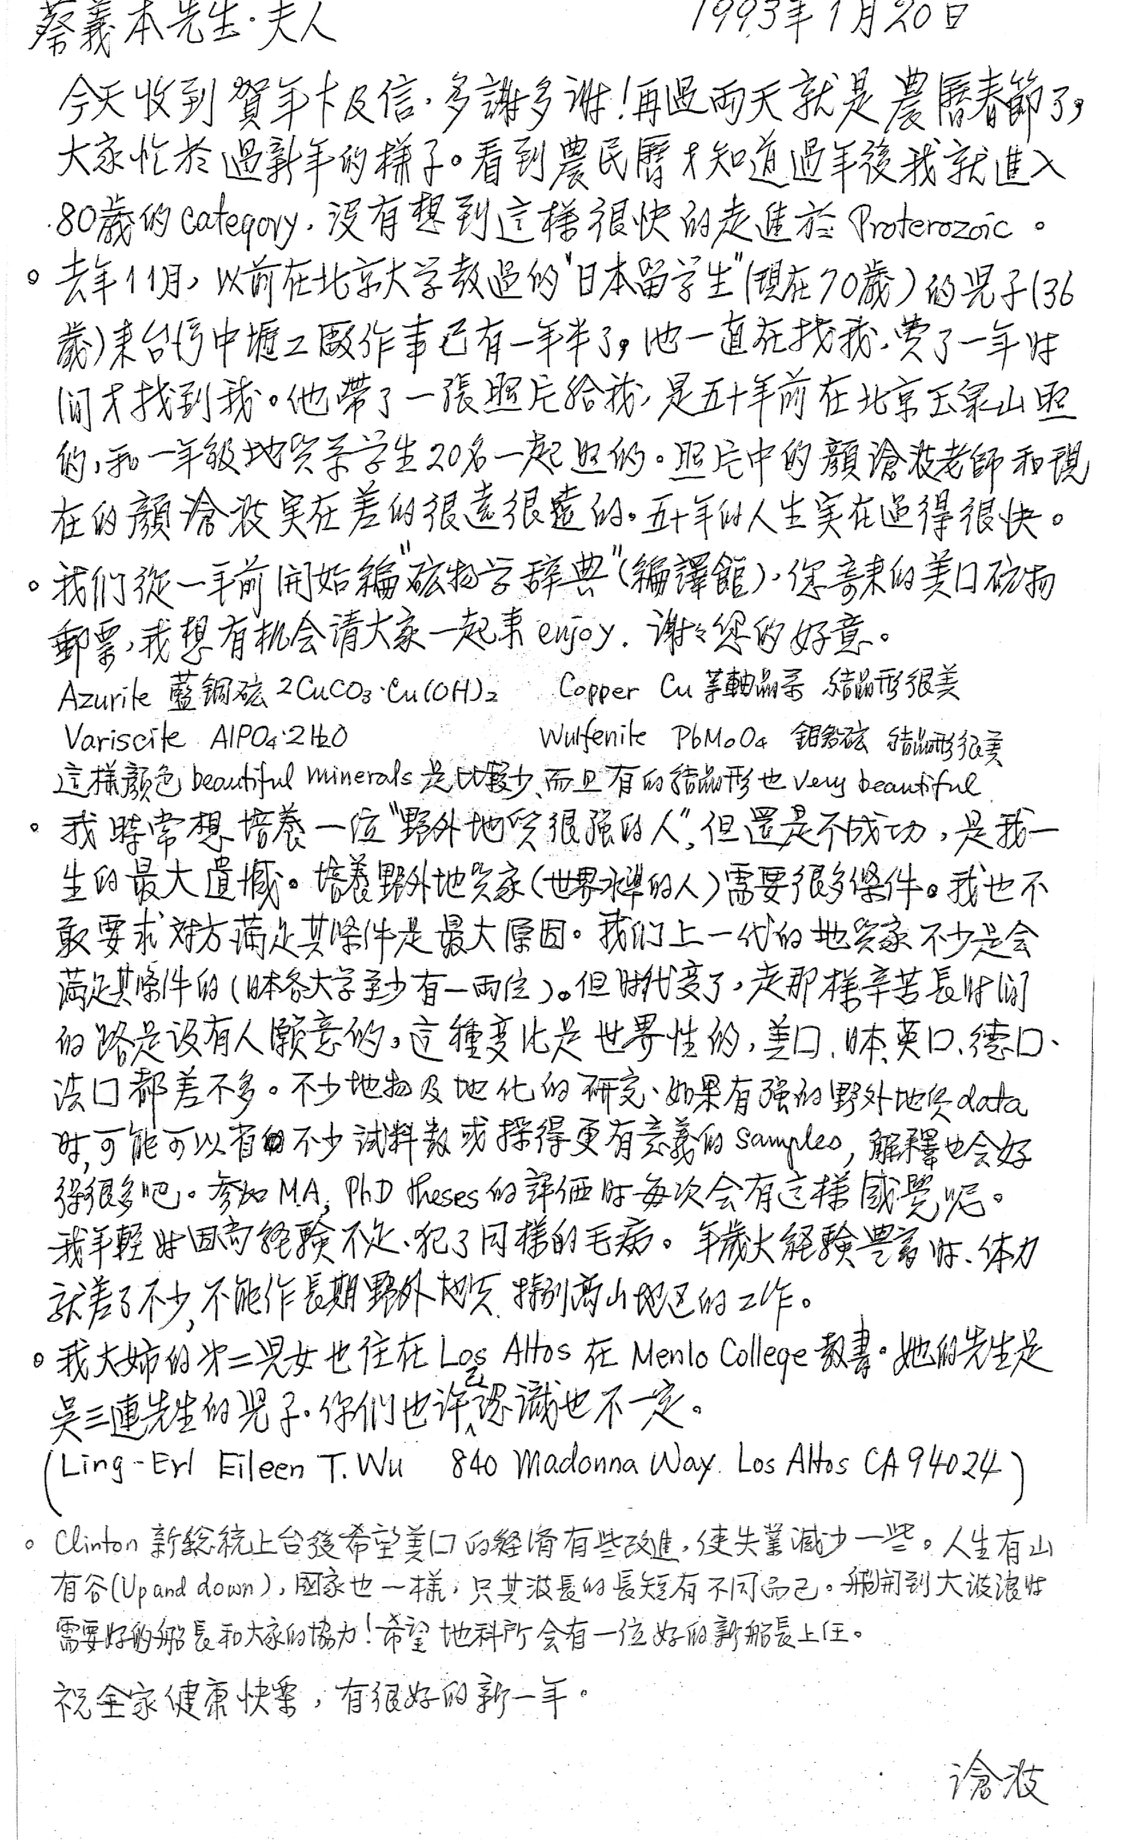 蔡義本先生·夫人 1993年1月20日
今天收到賀年卡及信,多謝多谢!再過両天就是農曆春節了,
大家忙於過新年的樣子。看到農民曆才知道過年後我就進入
80歲的category,沒有想到這樣很快的走進於Proterozoic。
。去年11月,以前在北京大学教過的"日本留学生"(現在70歲)的児子(36
歲)来台湾中壢工廠作事已有一年半了,他一直在找我,費了一年时
间才找到我。他帶了一張照片給我,是五十年前在北京玉泉山照
的,和一年級地质系学生20名一起照的。照片中的顔滄波老師和現
在的顔滄波実在差的很遠很遠的。五十年的人生実在過得很快。
。我们從一年前開始編"砿物学辞典"(編譯館),您寄来的美口砿物
郵票,我想有机会请大家一起来enjoy. 谢々您的好意。
Azurite 藍銅砿 2CuCO₃·Cu(OH)₂ Copper Cu 等軸晶系 結晶形很美
Variscite AlPO₄·2H₂O Wulfenite PbMoO₄ 鉬鉛砿 結晶形很美
這樣顔色beautiful minerals是比較少,而且有的結晶形也very beautiful
。我時常想培養一位"野外地质很强的人",但還是不成功,是我一
生的最大遺憾。培養野外地质家(世界水準的人)需要很多條件。我也不
敢要求对方満足其條件是最大原因。我们上一代的地质家不少是会
満足其條件的(日本各大学至少有一両位)。但时代变了,走那樣辛苦長时间
的路是没有人願意的,這種变化是世界性的,美口、日本、英口、德口、
法口都差不多。不少地物及地化的研究、如果有强的野外地质data
时,可能可以省不少試料数或採得更有意義的samples, 解釋也会好
得很多吧。参加M.A, PhD theses的評価时每次会有这样感覺呢。
我年輕时因為経験不足、犯了同樣的毛病。年歲大経験豊富时、体力
就差了不少,不能作長期野外地质 特別高山地区的工作。
。我大姉的次二児女也住在Los Altos在Menlo College教書。她的先生是
吳三連先生的児子。你们也许已認識也不一定。
(Ling-Erl Eileen T. Wu 840 Madonna Way. Los Altos CA 94024)
。Clinton新総統上台後希望美口的経済有些改進,使失業減少一些。人生有山
有谷(Up and down),國家也一樣,只其波長的長短有不同而己。船開到大波浪时
需要好的船長和大家的協力!希望地科所会有一位好的新船長上任。
祝全家健康快楽,有很好的新一年。
滄波